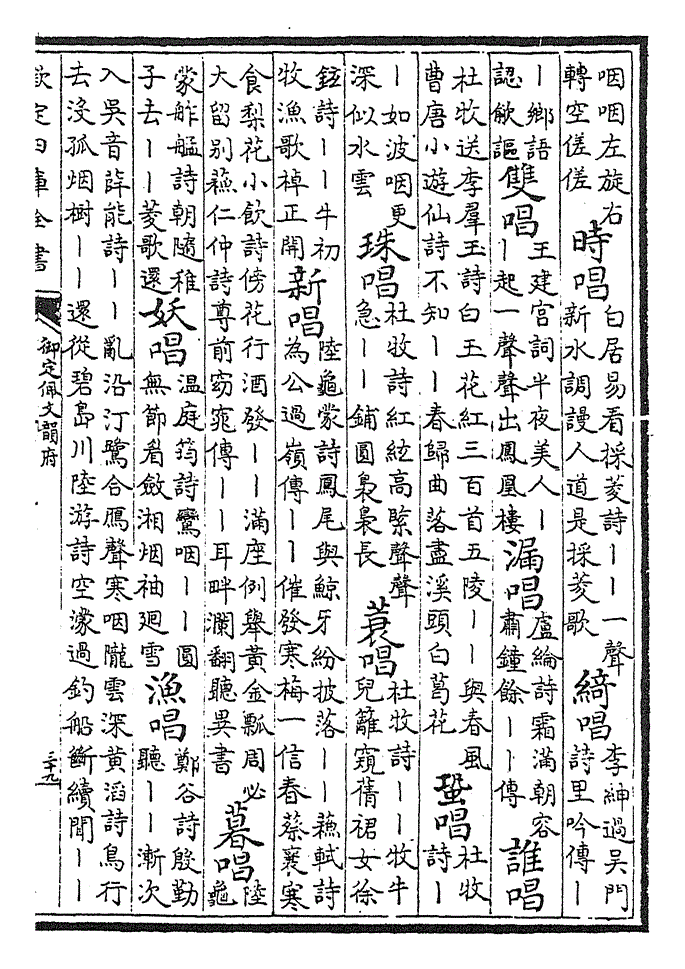 咽咽左旋右
轉空傞傞
時唱
白居易看採菱詩丨丨一聲
新水調謾人道是採菱歌
綺唱
李紳過吳門
詩里吟傳丨
丨鄉語
認飲謳
雙唱
王建宮詞半夜美人丨
丨起一聲聲出鳳凰樓
漏唱
盧綸詩霜滿朝容
肅鐘餘丨丨傳
誰唱
杜牧送李羣玉詩白玉花紅三百首五陵丨丨與春風
曹唐小遊仙詩不知丨丨春歸曲落盡溪頭白葛花
蛩唱
杜牧
詩丨
丨如波咽更
深似水雲
珠唱
杜牧詩紅絃高緊聲聲
急丨丨鋪圓裊裊長
蓑唱
杜牧詩丨丨牧牛
兒籬窺蒨裙女徐
鉉詩丨丨牛初
牧漁歌棹正開
新唱
陸龜蒙詩鳳尾與鯨牙紛披落丨丨蘓軾詩
為公過嶺傳丨丨催發寒梅一信春蔡襄寒
食梨花小飲詩傍花行酒發丨丨滿座例舉黃金瓢周必
大留别蘓仁仲詩尊前窈窕傳丨丨耳畔瀾翻聽吳書
暮唱
陸
龜
蒙舴艋詩朝隨稚
子去丨丨菱歌還
妖唱
温庭筠詩鸞咽丨丨圓
無節看斂湘烟袖廻雪
漁唱
鄭谷詩殷勤
聽丨丨漸次
入吳音薛能詩丨丨亂沿汀鷺合鴈聲寒咽隴雲深黃滔詩鳥行
去沒孤烟樹丨丨還從碧島川陸游詩空濛過釣船斷續聞丨丨
欽定四庫全書
御定佩文韻府
三十九